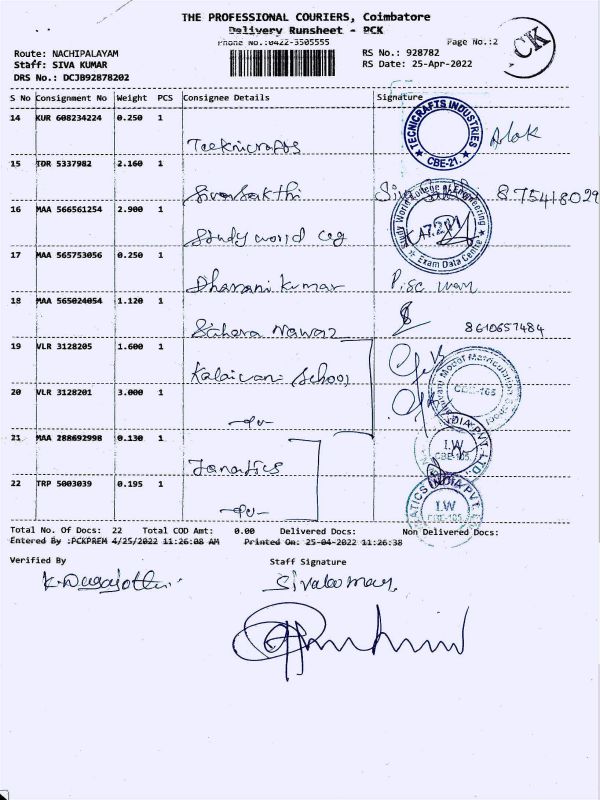 THE PROFESSIONAL COURIERS, Coimbatore
Delivery Runsheet - PCK
Phone No.:0422-3505555
Page No.:2
CK
Route: NACHIPALAYAM
RS No.: 928782
Staff: SIVA KUMAR
RS Date: 25-Apr-2022
DRS No.: DCJB92878202
S No Consignment No Weight PCS Consignee Details Signature
14 KUR 608234224 0.250 1
Tecknicrafts
TECNICRAFTS INDUSTRIES
CBE-21.
Alok
15 TDR 5337982 2.160 1
Sivasakthi 875418029
16 MAA 566561254 2.900 1
Study world clg
Study World College of Engineering
Exam Data Centre
17 MAA 565753056 0.250 1
Dharani kumar
18 MAA 565024054 1.120 1
Nawaz 8610657484
19 VLR 3128205 1.600 1
Kalaivani School
Model Matriculation School
20 VLR 3128201 3.000 1
21 MAA 288692998 0.130 1
Janatics
INDIA PVT. LTD.
I.W
CBE-105.
22 TRP 5003039 0.195 1
INDIA PVT.
I.W
Total No. Of Docs: 22 Total COD Amt: 0.00 Delivered Docs: Non Delivered Docs:
Entered By :PCKPREM 4/25/2022 11:26:08 AM Printed On: 25-04-2022 11:26:38
Verified By Staff Signature
Sivakumar